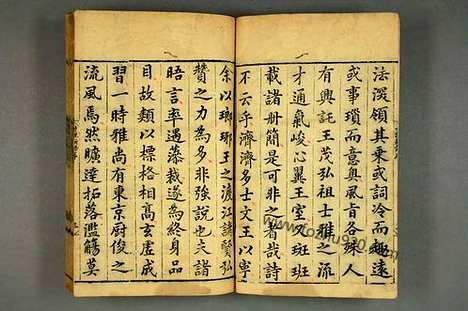 法深領其乘或詞冷而趣遠
或事瑣而意奧風旨各殊人
有興託王茂弘祖士雅之流
才通氣峻心翼王室又斑斑
載諸册簡是可非之者哉詩
不云乎濟濟多士文王以寧
余以瑯琊王之渡江諸賢弘
贊之力為多非強說也夫諸
晤言率遇藻裁遂為終身品
目故類以標格相高玄虛成
習一時雅尚有東京廚俊之
流風焉然曠達拓落濫觴莫